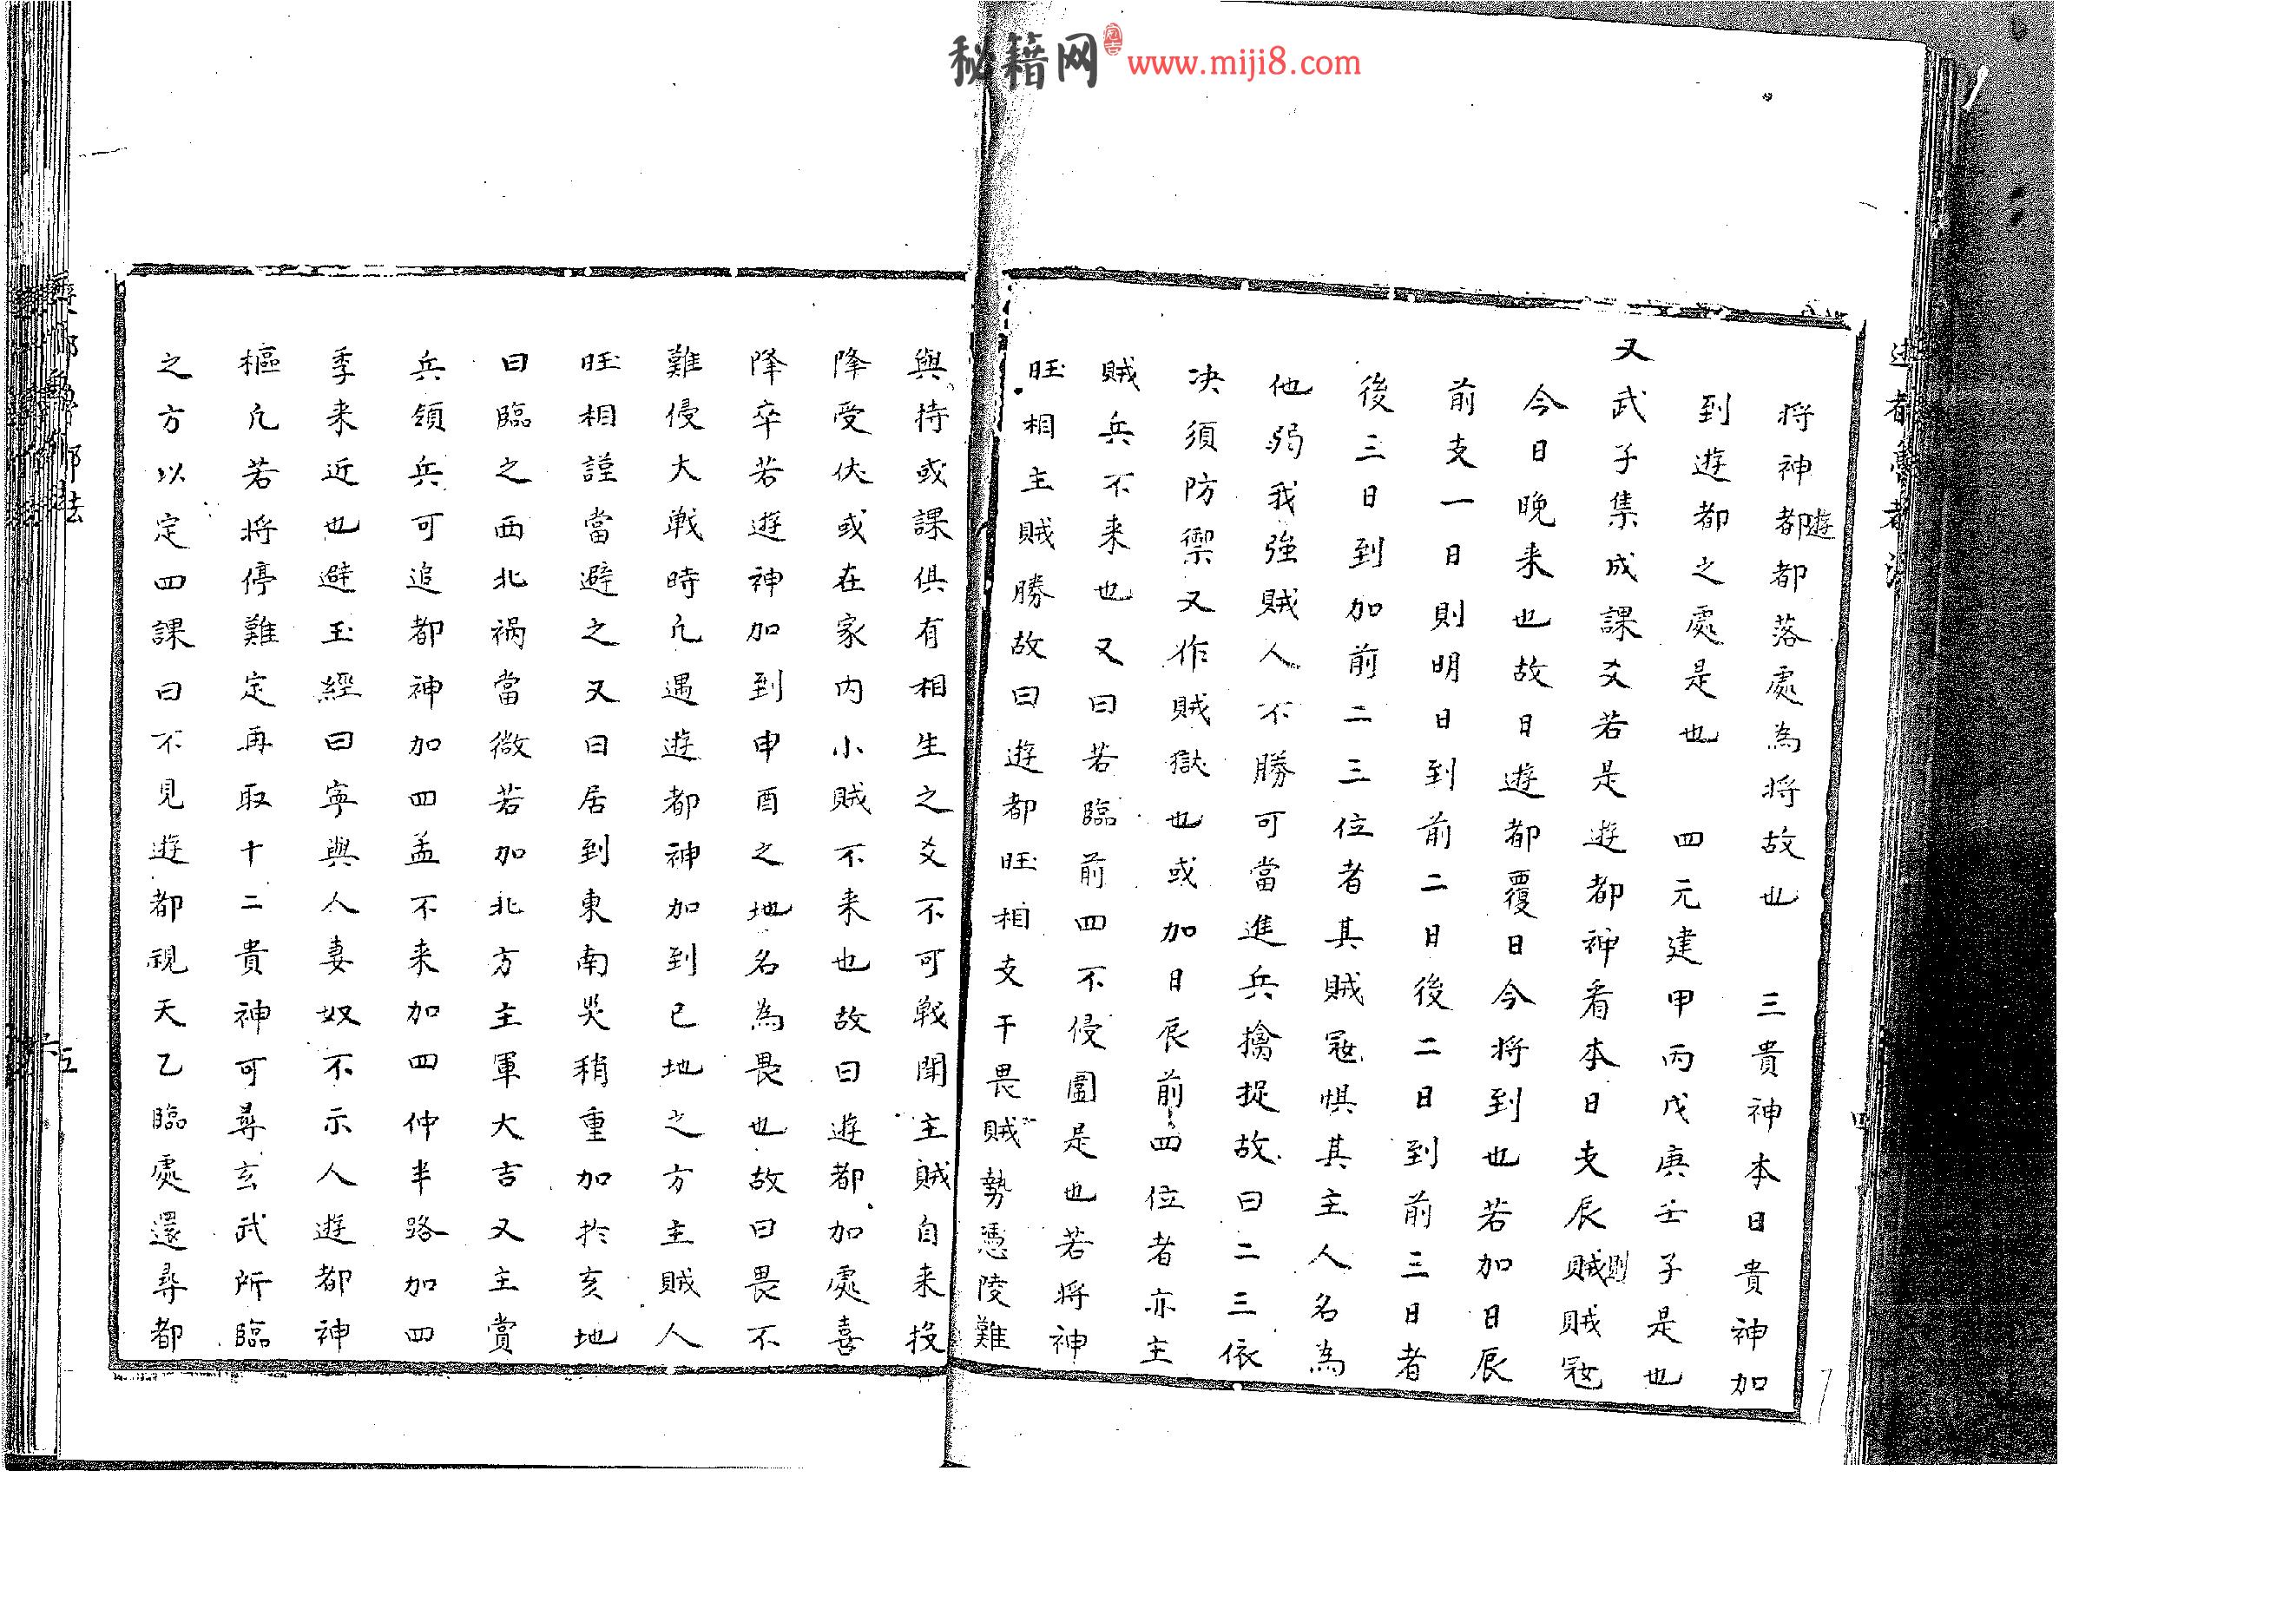 秘籍网 www.miji8.com
將神都遊都落處為將故也　三貴神本日貴神加
到遊都之處是也　四元建甲丙戊庚壬子是也
又武子集成課爻若是遊都神看本日支辰賊則賊冦
今日晚来也故日日遊都覆日今將到也若加日辰
前支一日則明日到前二日後二日到前三日者
後三日到加前二三位者其賊冦惧其主人名為
他弱我強賊人不勝可當進兵擒捉故曰二三依
决須防禦又作賊獄也或加日辰前四位者亦主
賊兵不来也又曰若臨前四不侵圍是也若將神
旺相主賊勝故曰遊都旺相支干畏賊勢憑陵難
與持或課俱有相生之爻不可戰聞主賊自来投
降受伏或在家内小賊不来也故曰遊都加處喜
降卒若遊神加到申酉之地名為畏也故曰畏不
難侵大戰時凢遇遊都神加到已地之方主賊人
旺相謹當避之又曰居到東南災稍重加於亥地
曰臨之西北祸當微若加北方主軍大吉又主賞
兵領兵可追都神加四孟不来加四仲半路加四
季来近也避玉經曰寧與人妻奴不示人遊都神
樞凢若將停難定再取十二貴神可尋玄武所臨
之方以定四課曰不見遊都視天乙臨處還尋都
五